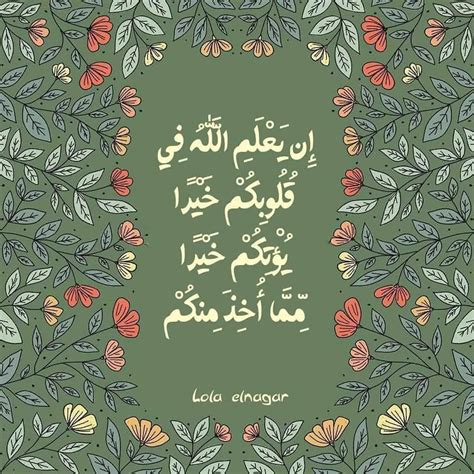 إِن يَعْلَمِ اللَّهُ فِي
قُلُوبِكُمْ خَيْرًا
يُؤْتِكُمْ خَيْرًا
مِّمَّا أُخِذَ مِنكُمْ
Lola elnagar